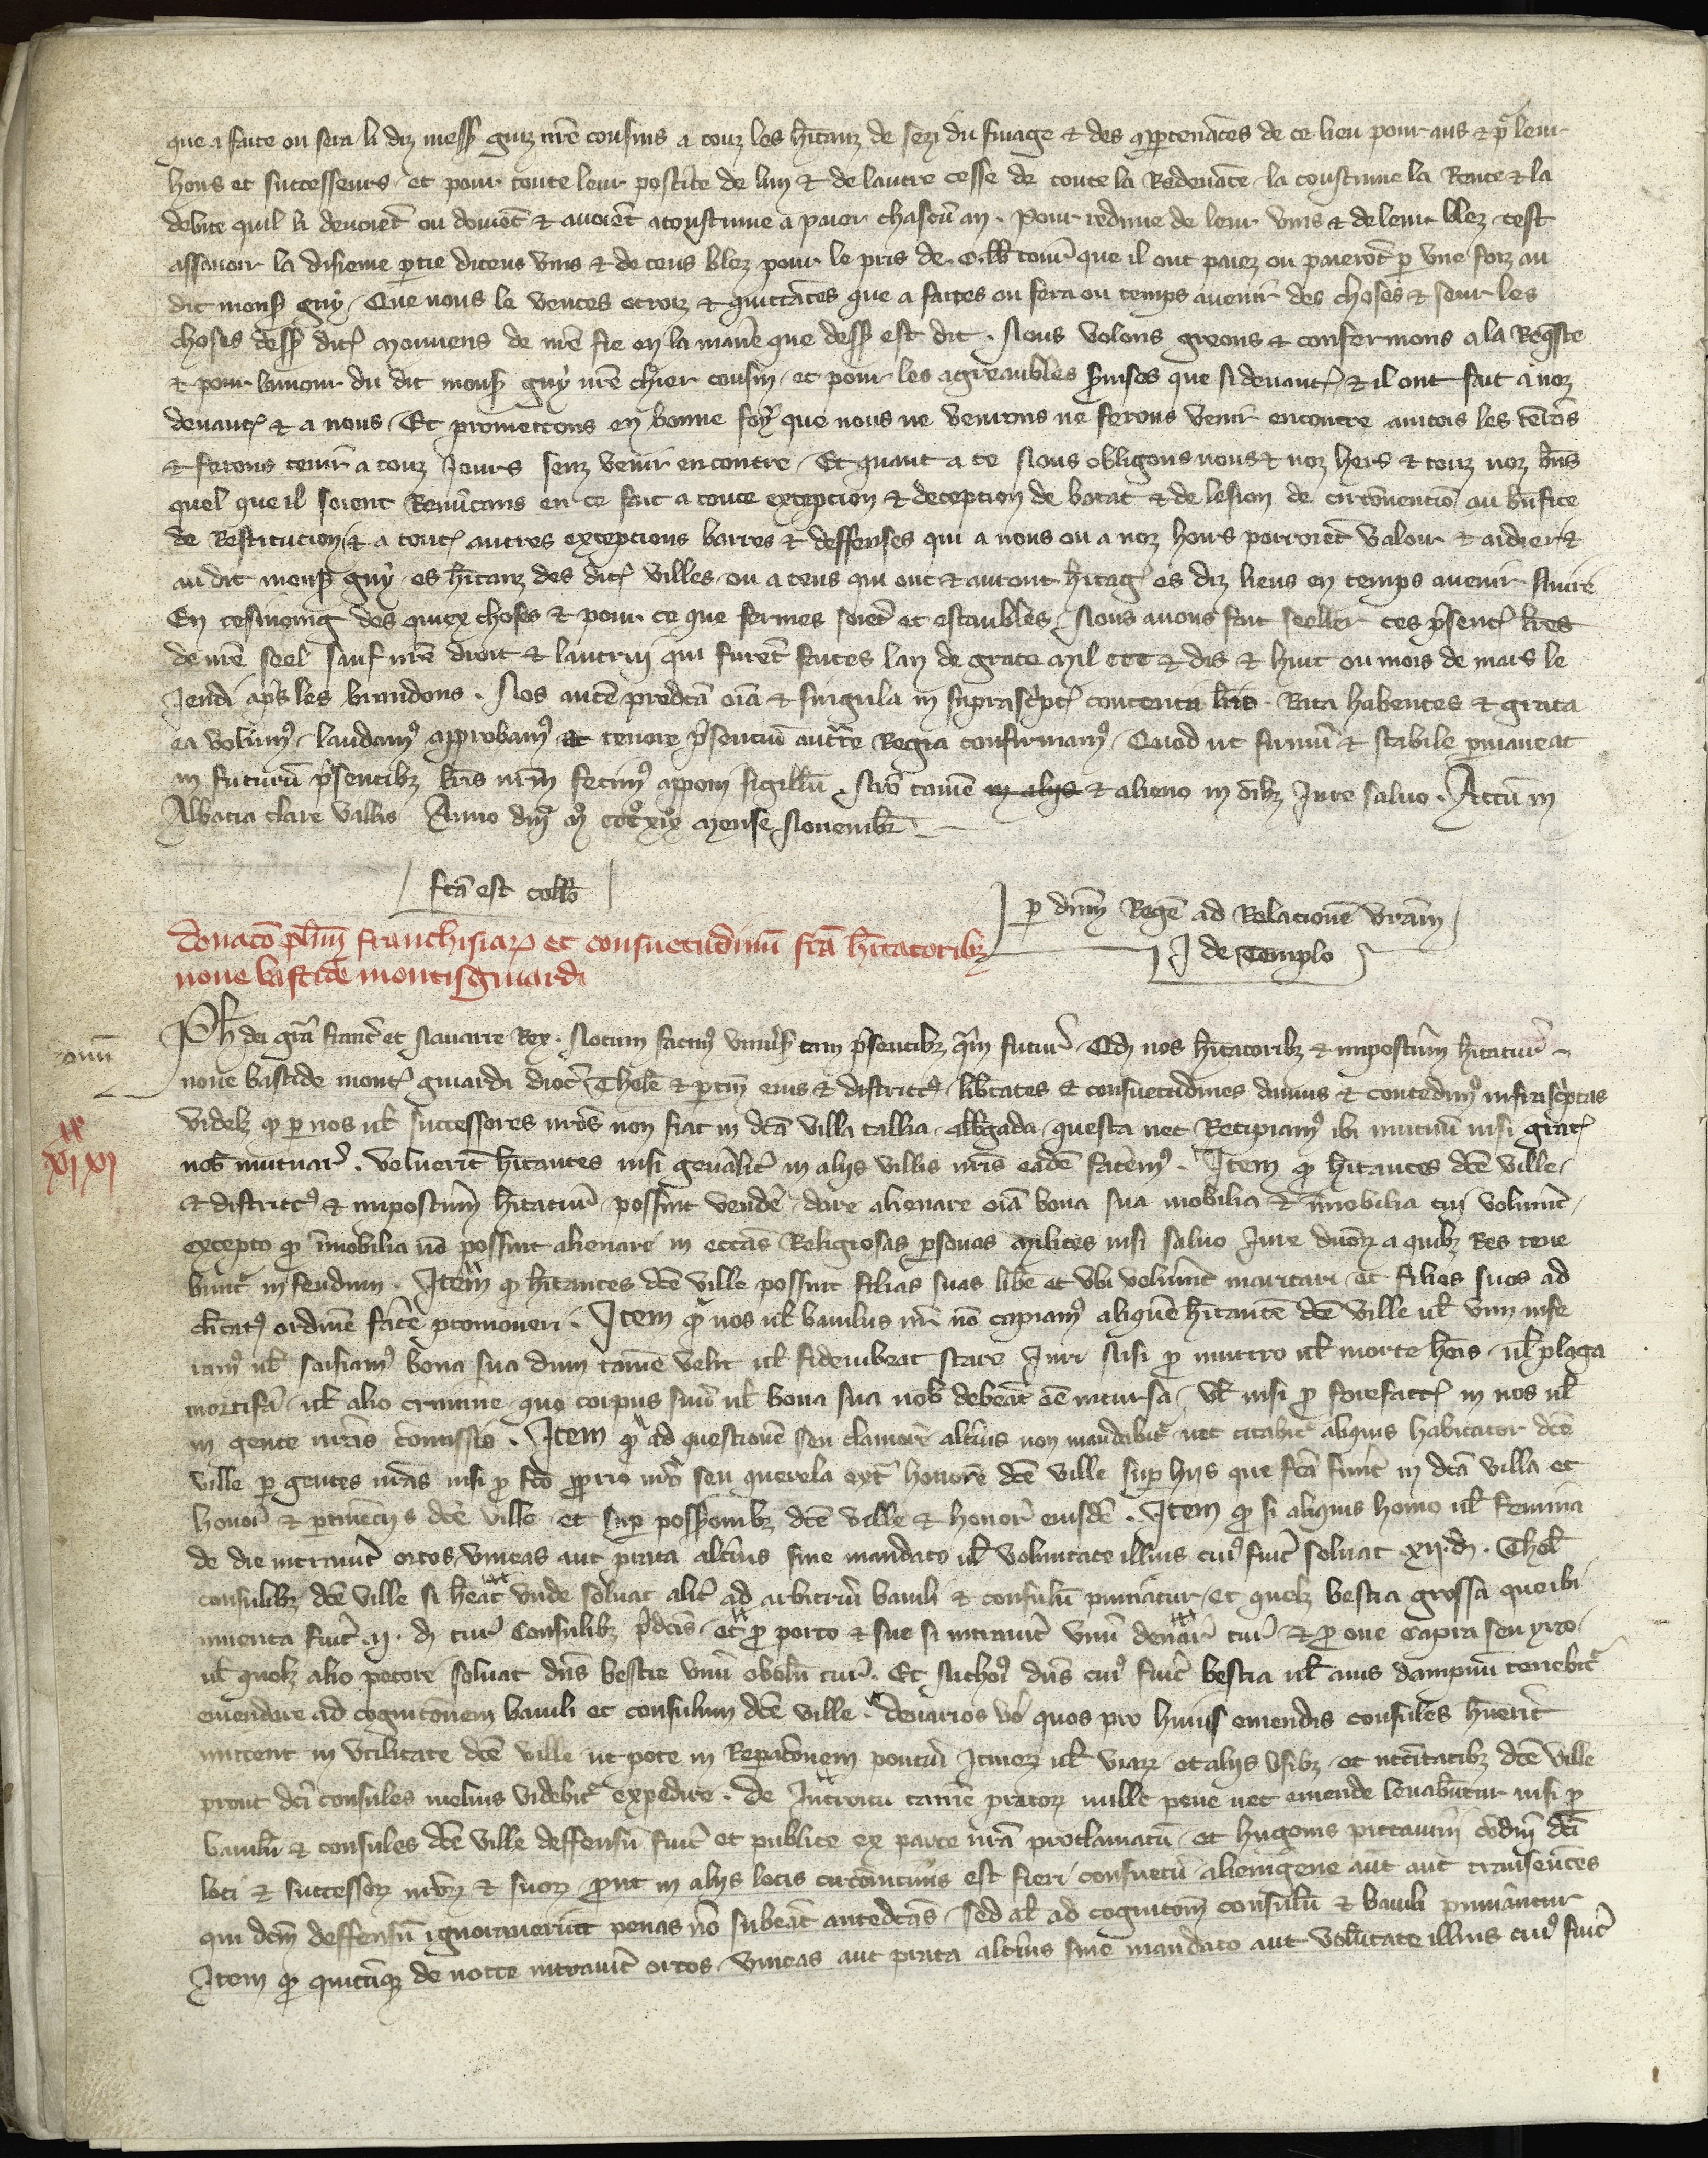 que a faite ou fera li diz mess guiz nre cousins a touz les hitanz de sezi du finage & des appartenances de ce lieu pour aus & pr leur
hoirs et successeurs et pour toute leur postite de lun & de lautre cesse de toute la Redevance la coustume la Rente & la
debite quil li devoiet ou doivet & avoiet acoustume a paier chascu an . Pour redime de leur vins & de leur blez cest
assavoir la disieme ptie diceus vins & de ceus blez pour le pris de tour que il ont paiez ou paierot p une foiz au
dit mons guy . Que nous le ventes otroiz & quittaces que a faites ou fera ou temps avenir des choses & seur les
choses dess dit mouvens de nre fie en la manie que dess est dit . Nous volons greons & confermons a la Reqste
& pour lamour du dit mons guy nre chier cousin et pour les agreaubles svises que si devant & il ont fait a noz
devant & a nous . Et promettons en bonne foy que nous ne venrons ne ferons venir encontre aincois les tenrons
& ferons tenir a touz Jours senz venir encontre . Et quant a ce Nous obligons nous & noz hers & touz noz bns
quel que il soient Renucans en ce fait a toute exception & deception de barat & de lesion de circonvencio au bnfice
de Restitucion & a tout autres exceptions barres & deffenses qui a nous ou a noz hoirs porroiet valoir & aidier &
au dit mons guy es hitanz des dit villes ou a ceus qui ont & auront hitag es diz lieus en temps avenir nuire
En tesmoing des quiex choses & pour ce que fermes soiet et estaubles Nous avons fait seeller ces psent lres
de nre seel sauf nre droit & lautrui qui furet faites lan de grace mil ccc & dis & huit ou mois de mars le
Jeudi aps les brandons . Nos aute predca oia & singula in suprascript contenta lris Rata habentes & grata
ea volum laudam approbam et tenore psentiu auctte Regia confirmam . Quod ut firmu & stabile pmaneat
in futuru psentibz lris nrm fecim apponi sigillu . Nro tame in aliis & alieno in oibz Jure salvo . Actu in
Abbacia clare vallis Anno dni m ccc xix mense Novembr
fca est collo
p dnm Rege ad Relacione vram
J de Templo
donaco plim franchisiar et consuetudinu fca hitatoribz
nove bastide montisguiardi
Ph dei gra franc et Navarre Rex . Notum facim univs tam psentibz qm futur . Qd nos hitatoribz & impostm hitatur
nove bastide mont guiardi dioc Thole & ptin eius & district libtates & consuetudines damus & concedim infrascptas
videlz q p nos ul successores nros non fiat in dca villa tallia albgada questa nec Recipiam ibi mutuu nisi grat
nob mutuar voluerit hitantes nisi genalit in aliis villis nris eade facem . Item q hitantes dce ville
& district & impostm hitatur possint vende dare alienare oia bona sua mobilia & imobilia cui voluint
excepto q imobilia no possint alienari in eccas Religiosas psonas milites nisi salvo Jure dnor a quibz Res tene
bunt in feudum . Item q hitantes dce ville possint filias suas libe et ubi voluint maritari et filios suos ad
clicat ordine face promoveri . Item q nos ul baiulus nr no capiam alique hitante dce ville ul vim infe
ram ul saisiam bona sua dum tame velit ul fideiubeat stare Juri Nisi p murtro ul morte hois ul plaga
mortifa ul alio crimine quo corpus suu ul bona sua nob debeat ee incursa . Vl nisi p forefact in nos ul
in gente nris comissis . Item q ad questione seu clamore altius non mandabit nec citabit aliquis habitator dce
ville p gentes nras nisi p fco pprio nro seu querela ext honore dce ville sup hiis que fca funt in dca villa et
honor & ptinenciis dce ville et sup possionibz dce ville & honor eiusde . Item q si aliquis homo ul femina
de die intravit ortos vineas aut prata altius sine mandato ul voluntate illius cui fuit solvat xii d Thol
consulibz dce ville si heat unde solvat alit ad arbitriu baiuli & consulu puniatur et quelz bestia grossa que ibi
inventa fuit ii d tur Consulibz pdcis et p porco & sue si intravit unu denar tur & p ove capra seu yrco
ul quolz alio pecore solvat dns bestie unu obolu tur . Et nichoi dns cui fuit bestia ul avis dampnu tenebit
emendare ad cognitonem baiuli et consulum dce ville . denarios vo quos pro huius emendis consules huerit
mittent in utilitate dce ville ut pote in Repatonem pontiu Itiner ul viar et aliis usibz et ncciatibz dce ville
prout dci consules melius videbit expedire . de Introitu tame prator nulle pene nec emende levabutur nisi p
baiulu & consules dce ville deffensu fuit et publice ex parte nra proclamatu et hugonis pictavini codni dci
loci & successor nror & suor put in aliis locis circuvicinis est fieri consuetu alienigene aut aut transeuntes
qui dcm deffensu ignoraverint penas no subeat antedcas sed al ad cognitom consulu & baiuli puniantur
Item q quicuqz de nocte intravit ortos vineas aut prata altius sine mandato aut volutate illius cui fuit